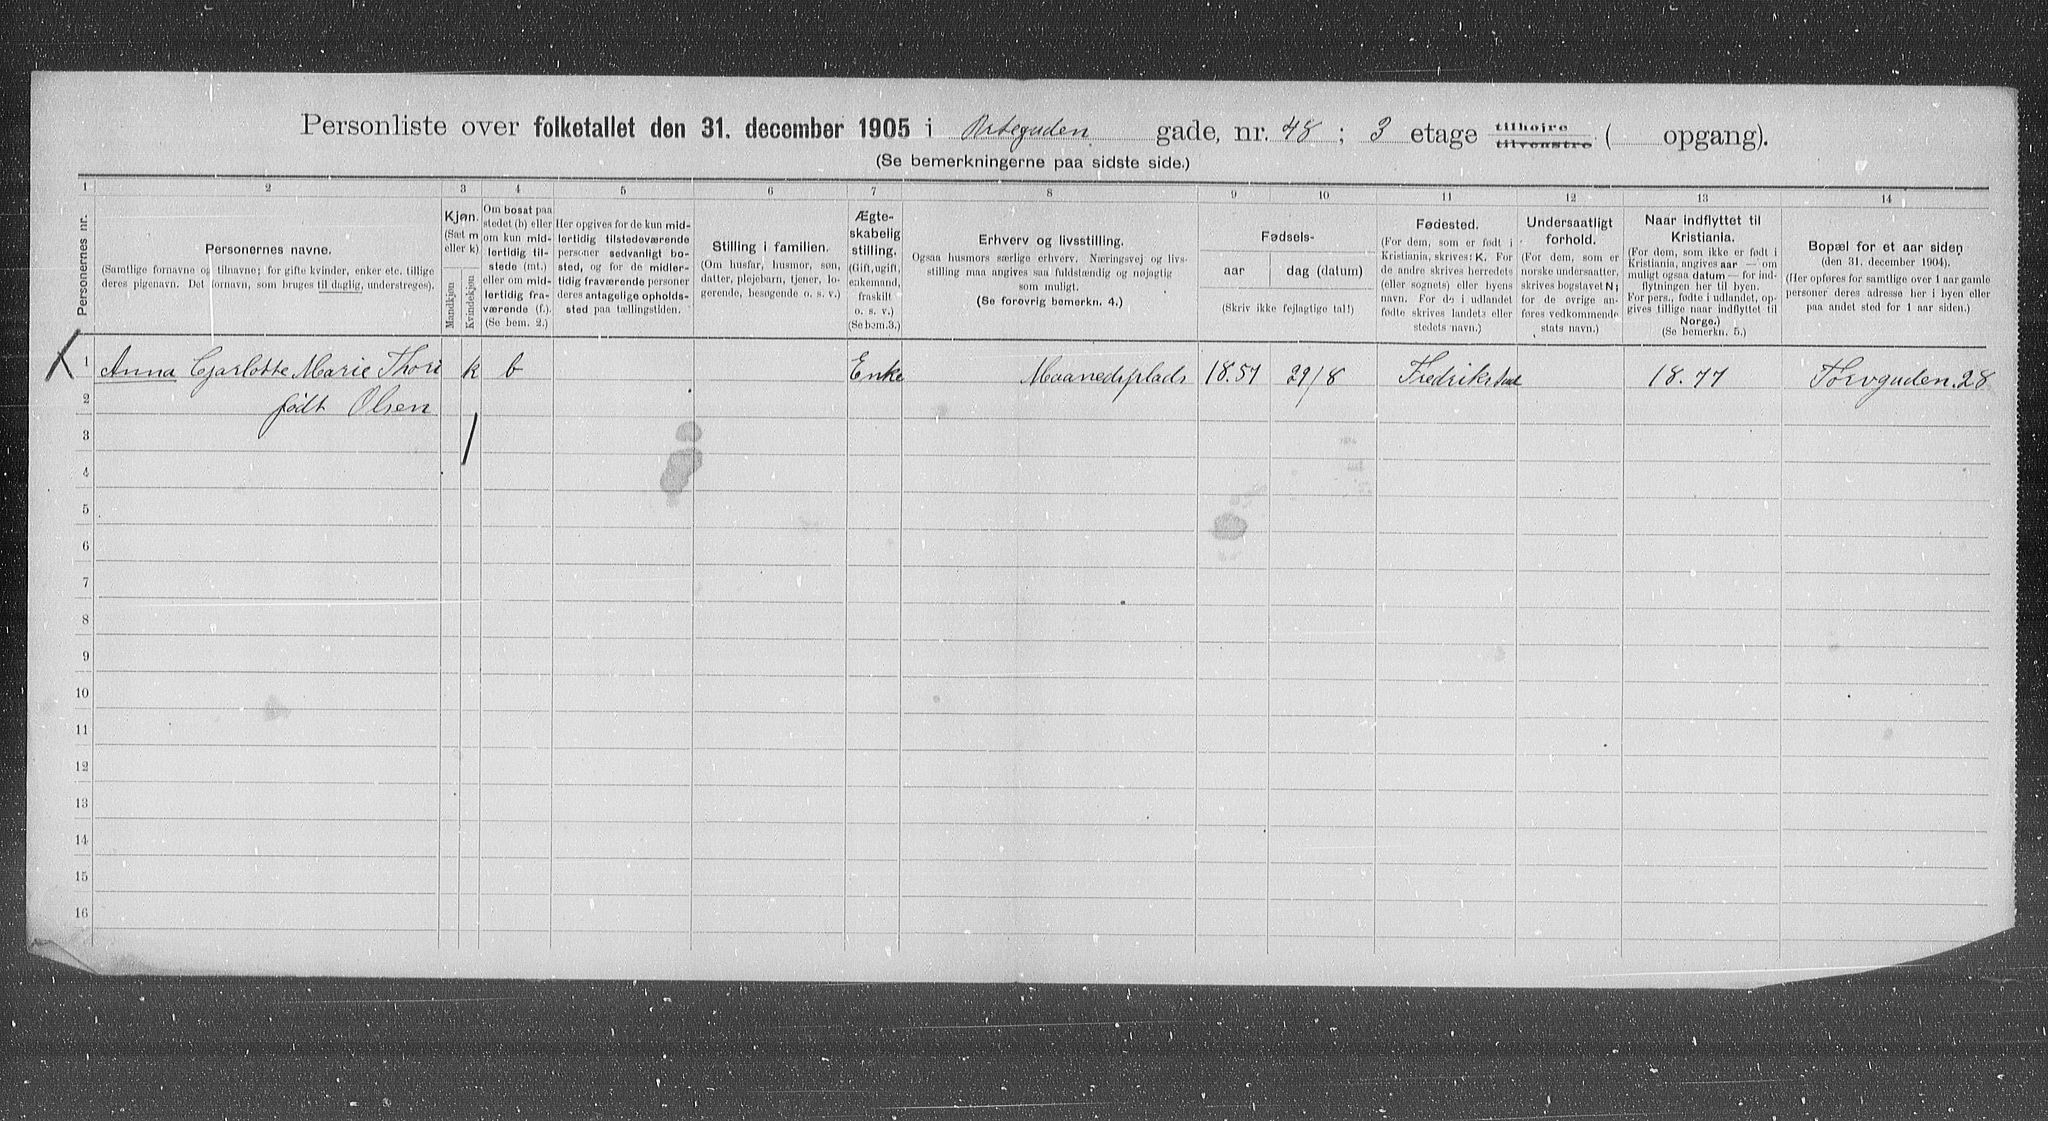 Personliste over folketallet den 31. december 1905 i Arbeguden gade, nr. 48; 3 etage tilhøjre tilvenstre ( opgang).
(Se bemerkningerne paa sidste side.)
1 2 3 4 5 6 7 8 9 10 11 12 13 14
Personernes nr.
Personernes navne.
(Samtlige fornavne og tilnavne; for gifte kvinder, enker etc. tillige deres pigenavn. Det fornavn, som bruges til daglig, understreges).
Kjøn.
(Sæt m eller k)
Mandkjøn
Kvindekjøn
Om bosat paa stedet (b) eller om kun midlertidig tilstede (mt.) eller om midlertidig fraværende (f.).
(Se bem. 2.)
Her opgives for de kun midlertidig tilstedeværende personer sedvanligt bosted, og for de midlertidig fraværende personer deres antagelige opholdssted paa tællingstiden.
Stilling i familien.
(Om husfar, husmor, søn, datter, plejebarn, tjener, logerende, besøgende o. s. v.)
Ægteskabelig stilling.
(Gift, ugift, enkemand, fraskilt o. s. v.)
(Se bem. 3.)
Erhverv og livsstilling.
Ogsaa husmors særlige erhverv. Næringsvej og livsstilling maa angives saa fuldstændig og nøjagtig som muligt.
(Se forøvrig bemerkn. 4.)
Fødsels-
aar
dag (datum)
(Skriv ikke fejlagtige tal!)
Fødested.
(For dem, som er født i Kristiania, skrives: K. For de andre skrives herredets (eller sognets) eller byens navn. For de i udlandet fødte skrives landets eller stedets navn.)
Undersaatligt forhold.
(For dem, som er norske undersaatter, skrives bogstavet N; for de øvrige anføres vedkommende stats navn.)
Naar indflyttet til Kristiania.
(For dem, som ikke er født i Kristiania, angives aar — om muligt ogsaa datum — for indflytningen her til byen. For pers., fødte i udlandet, opgives tillige naar indflyttet til Norge.)
(Se bemerkn. 5.)
Bopæl for et aar siden
(den 31. december 1904).
(Her opføres for samtlige over 1 aar gamle personer deres adresse her i byen eller paa andet sted for 1 aar siden.)
1 Anna Cjarlotte Marie Thori k b Enke Maanedsplads 18.51 29/8 Fredrikstad 18.77 Torvguden.28
2 født Olsen
3
4
5
6
7
8
9
10
11
12
13
14
15
16